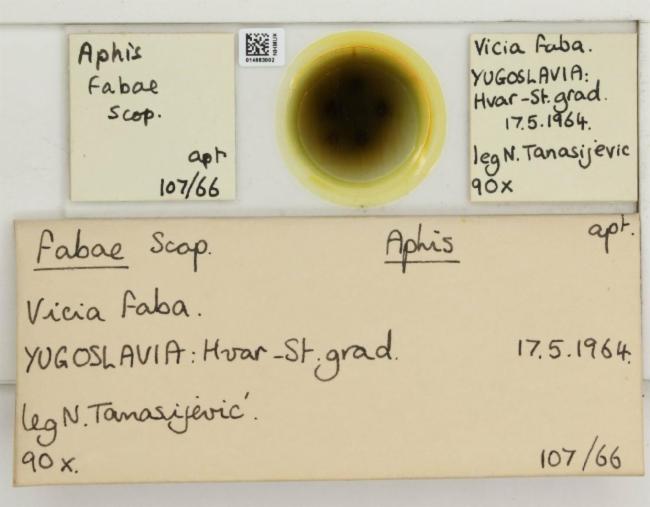 Aphis
Fabae
Scop.
apt
107/66
NHMUK
014883002
Vicia faba.
YUGOSLAVIA:
Hvar-St.grad.
17.5.1964.
leg N. Tanasijevic
90x
Fabae Scop. Aphis apt.
Vicia faba.
YUGOSLAVIA: Hvar-St.grad. 17.5.1964.
leg N. Tanasijević.
90x. 107/66